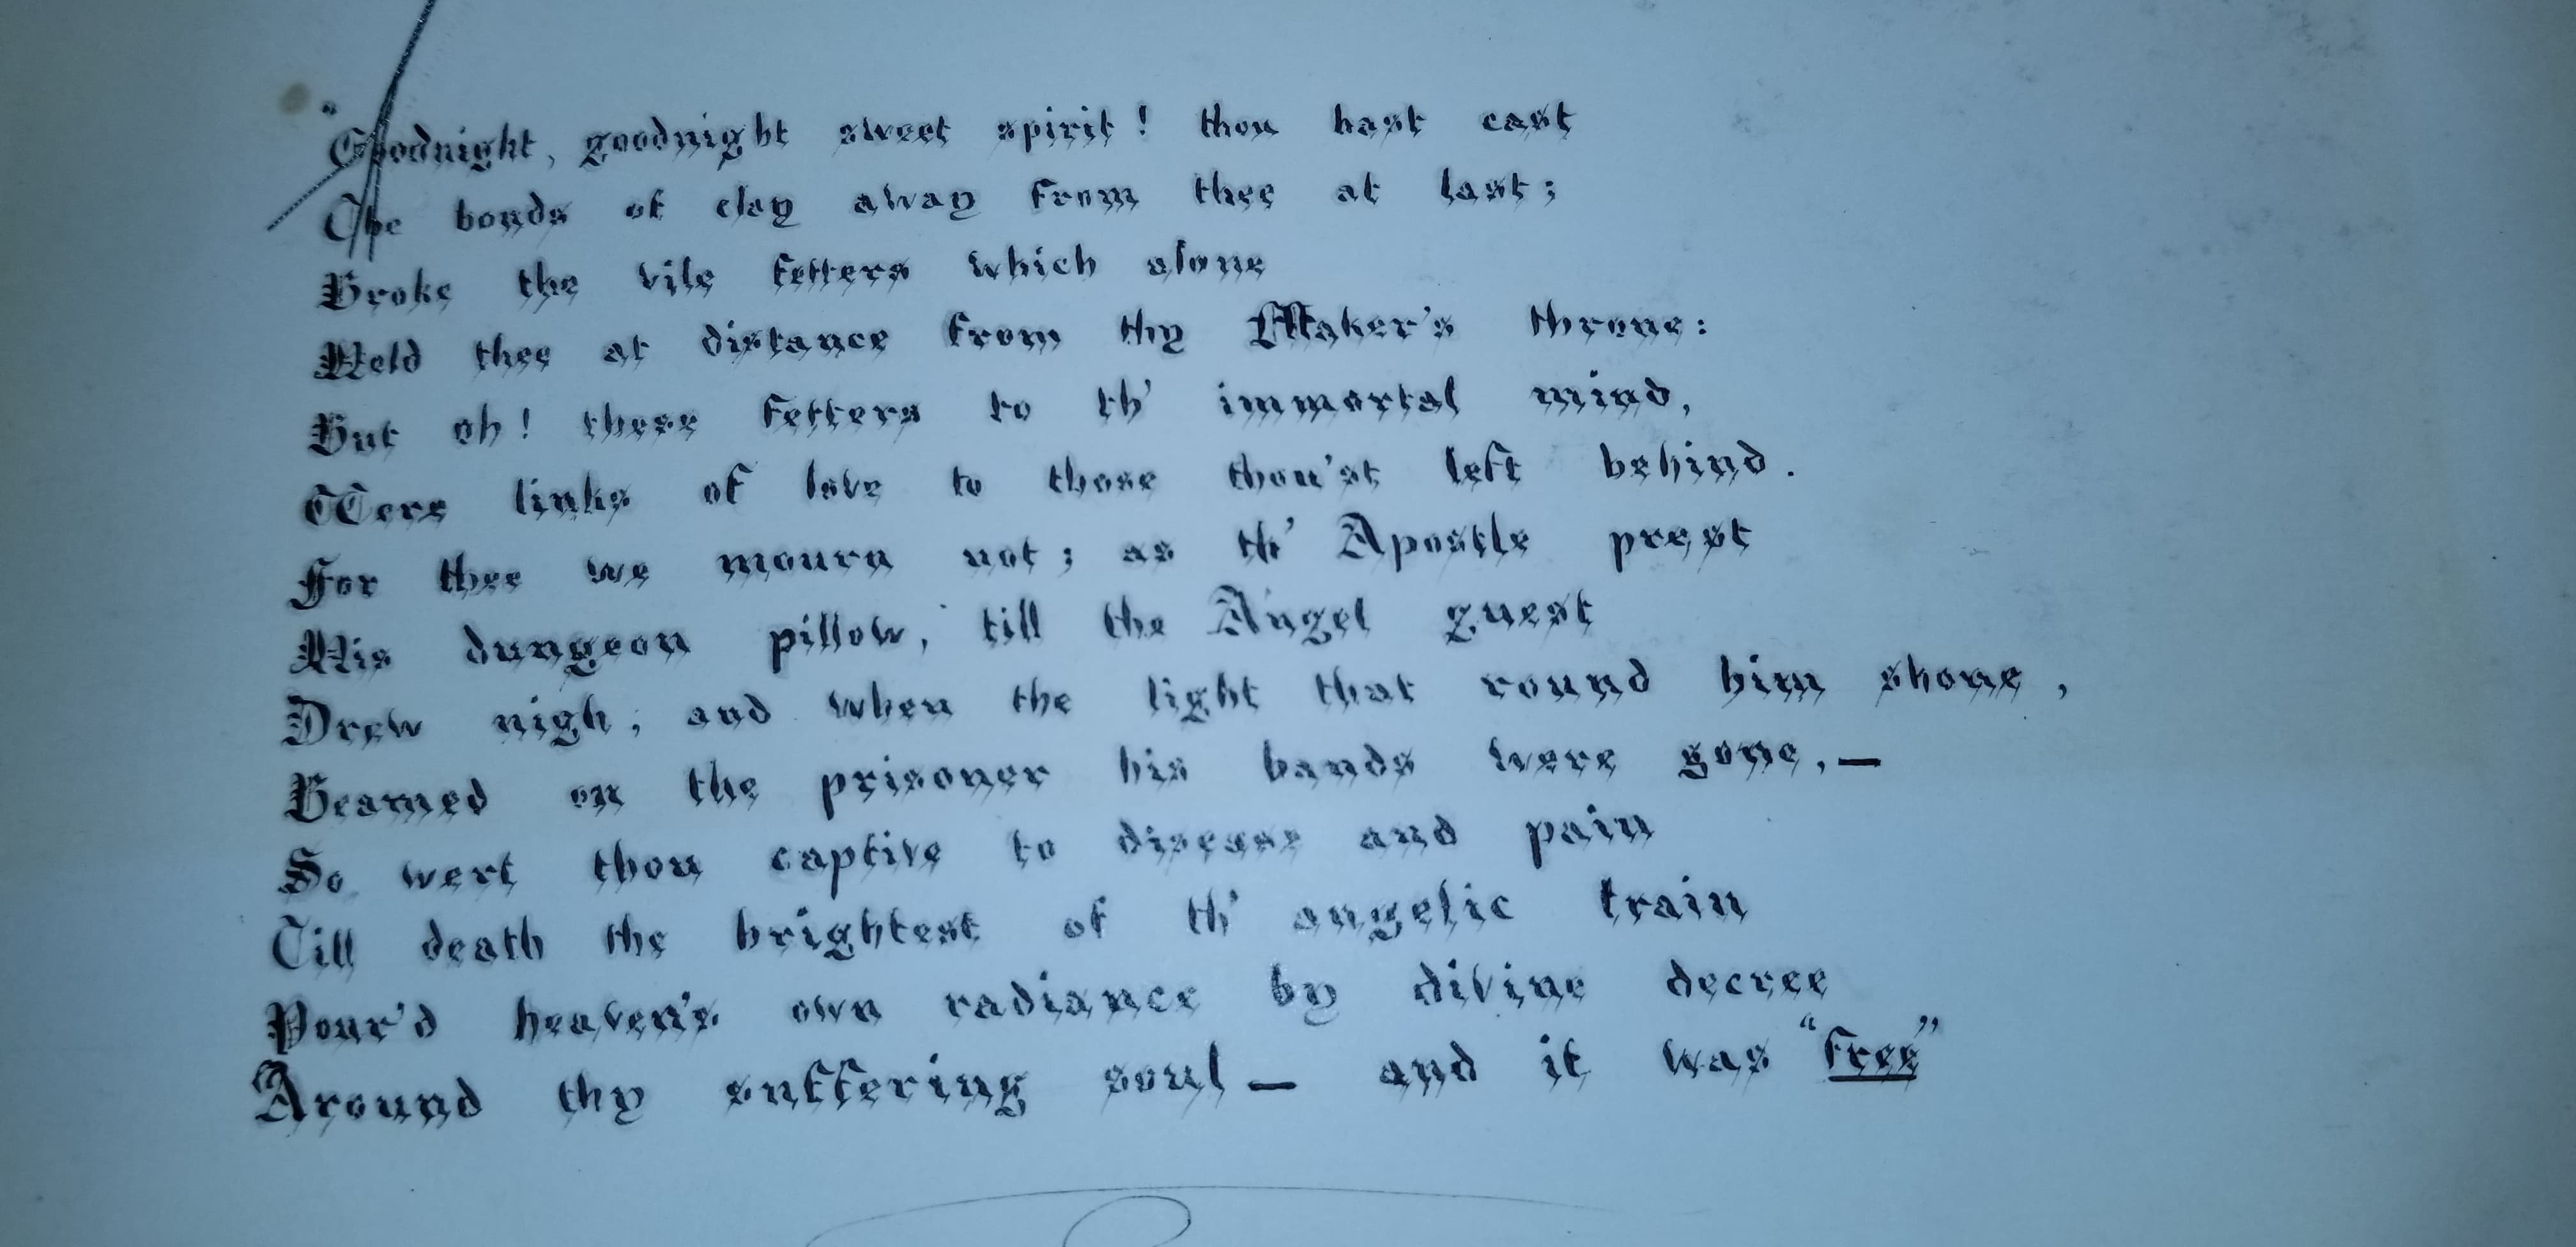 "Goodnight, goodnight sweet spirit! thou hast cast
The bonds of clay away from thee at last;
Broke the vile fetters which alone
Held thee at distance from thy Maker's throne:
But oh! these fetters to th' immortal mind,
Were links of love to those thou'st left behind.
For thee we mourn not; as th' Apostle prest
His dungeon pillow, till the Angel guest
Drew nigh, and when the light that round him shone,
Beamed on the prisoner his bands were gone,—
So wert thou captive to disease and pain
Till death the brightest of th' angelic train
Pour'd heaven's own radiance by divine decree
Around thy suffering soul — and it was "free"